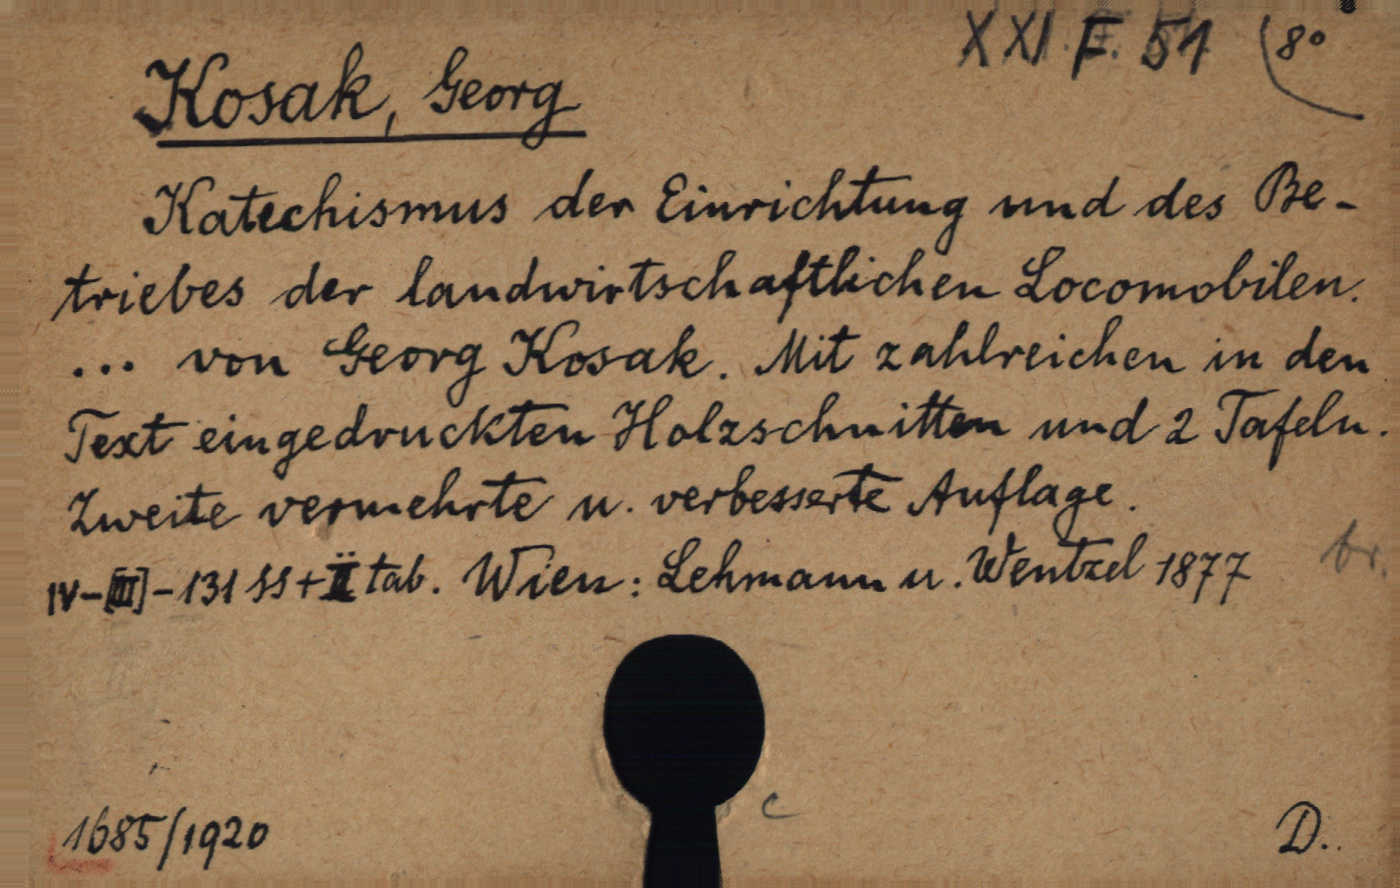 XXI. F. 51 8°
Kosak, Georg
Katechismus der Einrichtung und des Be-
triebes der landwirtschaftlichen Locomobilen.
... von Georg Kosak. Mit zahlreichen in den
Text eingedruckten Holzschnitten und 2 Tafeln.
Zweite vermehrte u. verbesserte Auflage.
IV-[III]-131 SS + II tab. Wien: Lehmann u. Wentzel 1877
br.
c
1685/1920
D.